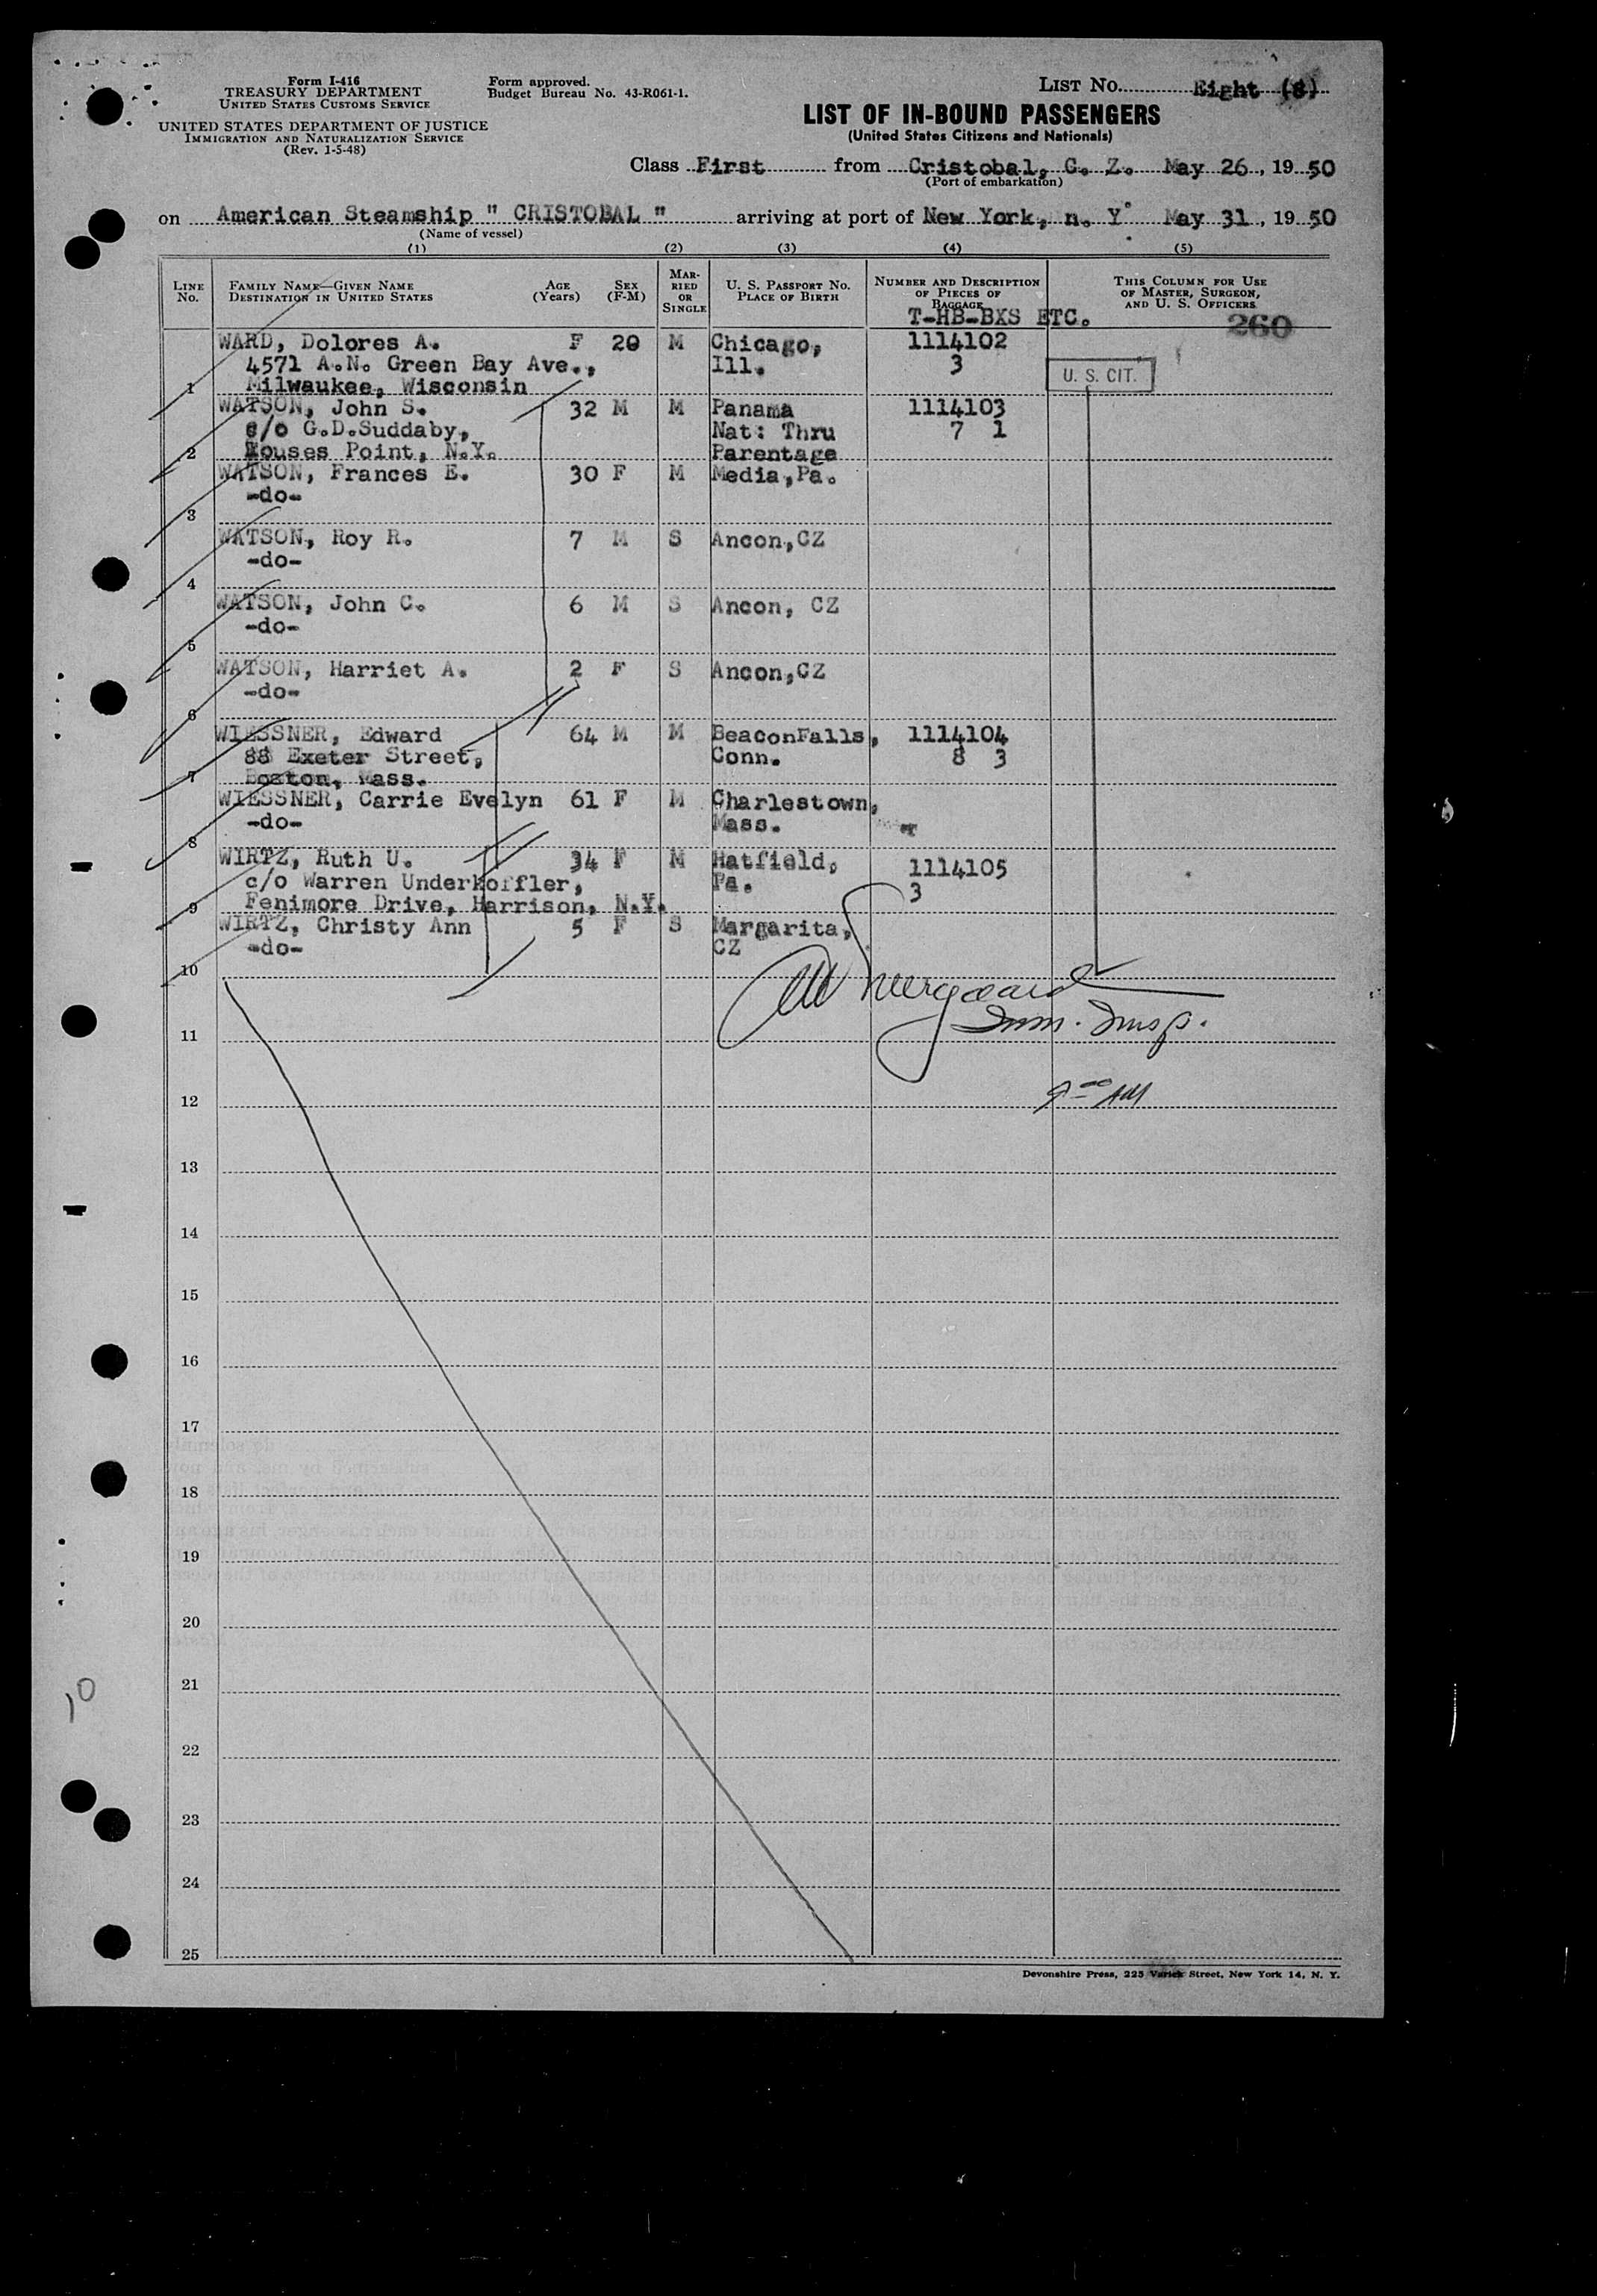 Form I-416
TREASURY DEPARTMENT
UNITED STATES CUSTOMS SERVICE
UNITED STATES DEPARTMENT OF JUSTICE
IMMIGRATION AND NATURALIZATION SERVICE
(Rev. 1-5-48)
Form approved.
Budget Bureau No. 43-R061-1.
LIST No. Eight (8)
LIST OF IN-BOUND PASSENGERS
(United States Citizens and Nationals)
Class First from Cristobal, C. Z. May 26, 19 50
(Port of embarkation)
on American Steamship " CRISTOBAL " arriving at port of New York, n. Y. May 31, 19 50
(Name of vessel)
(1) (2) (3) (4) (5)
LINE No. FAMILY NAME—GIVEN NAME DESTINATION IN UNITED STATES AGE (Years) SEX (F-M) MARRIED OR SINGLE U. S. PASSPORT NO. PLACE OF BIRTH NUMBER AND DESCRIPTION OF PIECES OF BAGGAGE THIS COLUMN FOR USE OF MASTER, SURGEON, AND U. S. OFFICERS
T-HB-BXS ETC. 260
WARD, Dolores A. F 20 M Chicago, 1114102
4571 A.N. Green Bay Ave., Ill. 3 U. S. CIT.
1 Milwaukee, Wisconsin
WATSON, John S. 32 M M Panama 1114103
c/o G.D.Suddaby, Nat: Thru 7 1
2 Rouses Point, N.Y. Parentage
WATSON, Frances E. 30 F M Media,Pa.
-do-
3
WATSON, Roy R. 7 M S Ancon,CZ
-do-
4
WATSON, John C. 6 M S Ancon, CZ
-do-
5
WATSON, Harriet A. 2 F S Ancon,CZ
-do-
6
WIESSNER, Edward 64 M M BeaconFalls, 1114104
88 Exeter Street, Conn. 8 3
7 Boston, Mass.
WIESSNER, Carrie Evelyn 61 F M Charlestown,
-do- Mass.
8
WIRTZ, Ruth U. 34 F M Hatfield, 1114105
c/o Warren Underkoffler, Pa. 3
9 Fenimore Drive, Harrison, N.Y.
WIRTZ, Christy Ann 5 F S Margarita,
-do- CZ
10
Imm. Insp.
11
9 00 AM
12
13
14
15
16
17
18
19
20
21
10
22
23
24
25
Devonshire Press, 225 Varick Street, New York 14, N. Y.